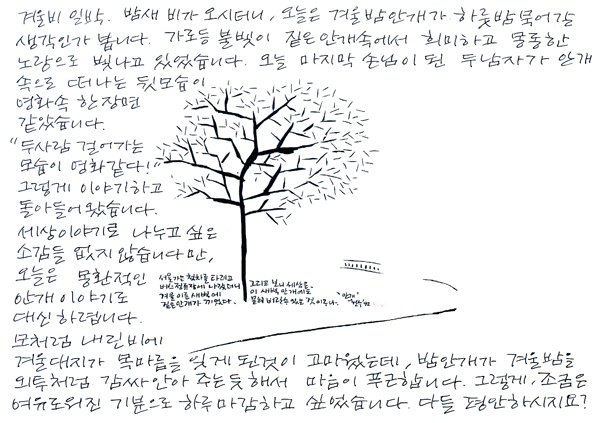 겨울비 일박. 밤새 비가 오시더니, 오늘은 겨울밤안개가 하룻밤 묵어갈
생각인가 봅니다. 가로등 불빛이 짙은안개속에서 희미하고 몽롱한
노랑으로 빛나고 있었습니다. 오늘 마지막 손님이 된 두남자가 안개
속으로 떠나는 뒷모습이
영화속 한장면
같았습니다.
"두사람 걸어가는
모습이 영화같다!"
그렇게 이야기하고
돌아들어 왔습니다.
세상이야기로 나누고 싶은
소감들 없지 않습니다만,
오늘은 몽환적인
안개이야기로
대신 하렵니다.
모처럼 내린비에
겨울대지가 목마름을 잊게 된것이 고마웠는데, 밤안개가 겨울밤을
외투처럼 감싸안아 주는듯해서 마음이 푸근합니다. 그렇게, 조금은
여유로워진 기분으로 하루마감하고 싶었습니다. 다들 평안하시지요?
서울가는 첫차를 타려고
버스정류장에 나갔더니
겨울 이른 새벽에
짙은안개가 끼었다.
그리고 보니 세상은
이 새벽 안개에도
묻혀 버릴수 있는 것이구나.
"안개"